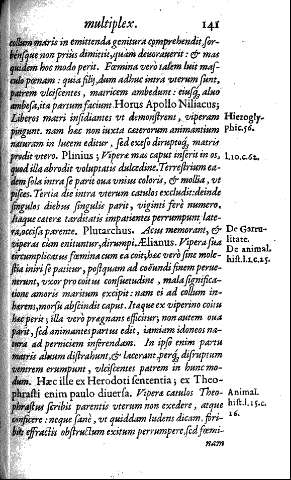 multiplex. 141
collum maris in emittenda genitura comprehendit, sor-
bénsque non priùs dimittit, quàm deuorauerit: & mas
quidem hoc modo perit. Fœmina verò talem luit mas-
culo pœnam: quia filij, dum adhuc intra vterum sunt,
patrem vlciscentes, matricem ambedunt: eiusq́; aluo
ambesa, ita partum faciunt. Horus Apollo Niliacus;
Liberos matri insidiantes vt demonstrent, viperam
pingunt. nam hæc non iuxta cæterorum animantium
naturam in lucem editur, sed exeso diruptoq́; matris
prodit vtero. Plinius; Viperæ mas caput inserit in os,
quod illa abrodit voluptatis dulcedine. Terrestrium ea-
dem sola intra se parit oua vnius coloris, & mollia, vt
pisces. Tertia die intra vterum catulos excludit: deinde
singulos diebus singulis parit, viginti ferè numero.
Itaque ceteræ tarditatis impatientes perrumpunt late-
ra, occisa parente. Plutarchus. Acus memorant, &
viperas cùm enituntur, dirumpi. Ælianus. Vipera sua
circumplicatus fœmina cum ea coit; hæc verò sine mole-
stia iniri se patitur, postquam ad coëundi finem perue-
nerunt, vxor pro coitus consuetudine, mala significa-
tione amoris marium excipit: nam ei ad collum in-
hærens, morsu abscindit caput. Itaque ex viperino coitu
hic perit; illa verò pregnans efficitur, non autem oua
parit, sed animantes partus edit, iamiam idoneos na-
tura ad perniciem inferendam. In ipso enim partu
matris aluum distrahunt, & lacerant, perq́; disruptum
ventrem erumpunt, vlciscentes patrem in hunc mo-
dum. Hæc ille ex Herodoti sententia; ex Theo-
phrasti enim paulo diuersa. Viperæ catulos Theo-
phrastus scribit parentis vterum non exedere, atque
conficere: neque sanè, vt quiddam ludens dicam, fori-
bus effractis obstructum exitum perrumpere, sed fœmi-
nam
Hierogly-
phic. 56.
l. 10. c. 62.
De Garru-
litate.
De animal.
hist. l. 1. c. 25.
Animal.
hist. l. 15. c.
16.